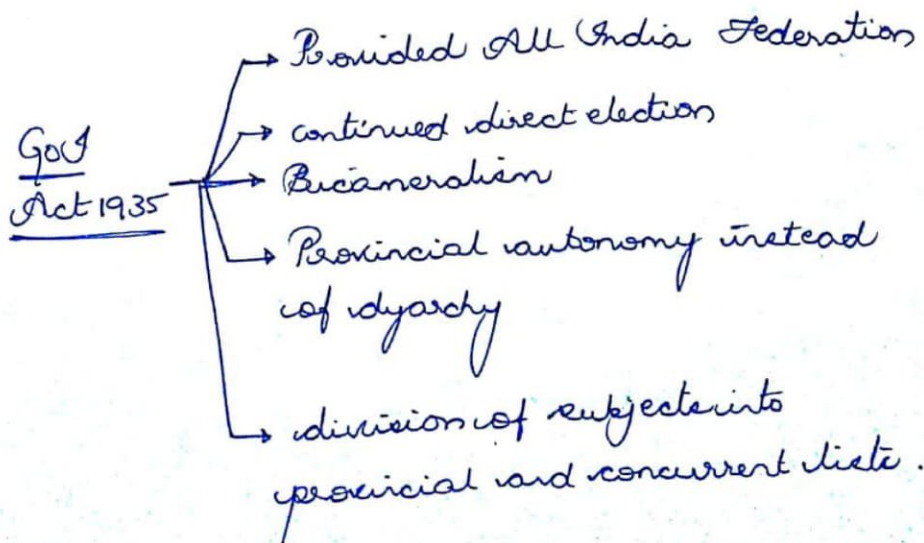 Provided All India Federation
continued direct election
GoI
Act 1935
Bicameralism
Provincial autonomy instead
of dyarchy
division of subjects into
provincial and concurrent lists.